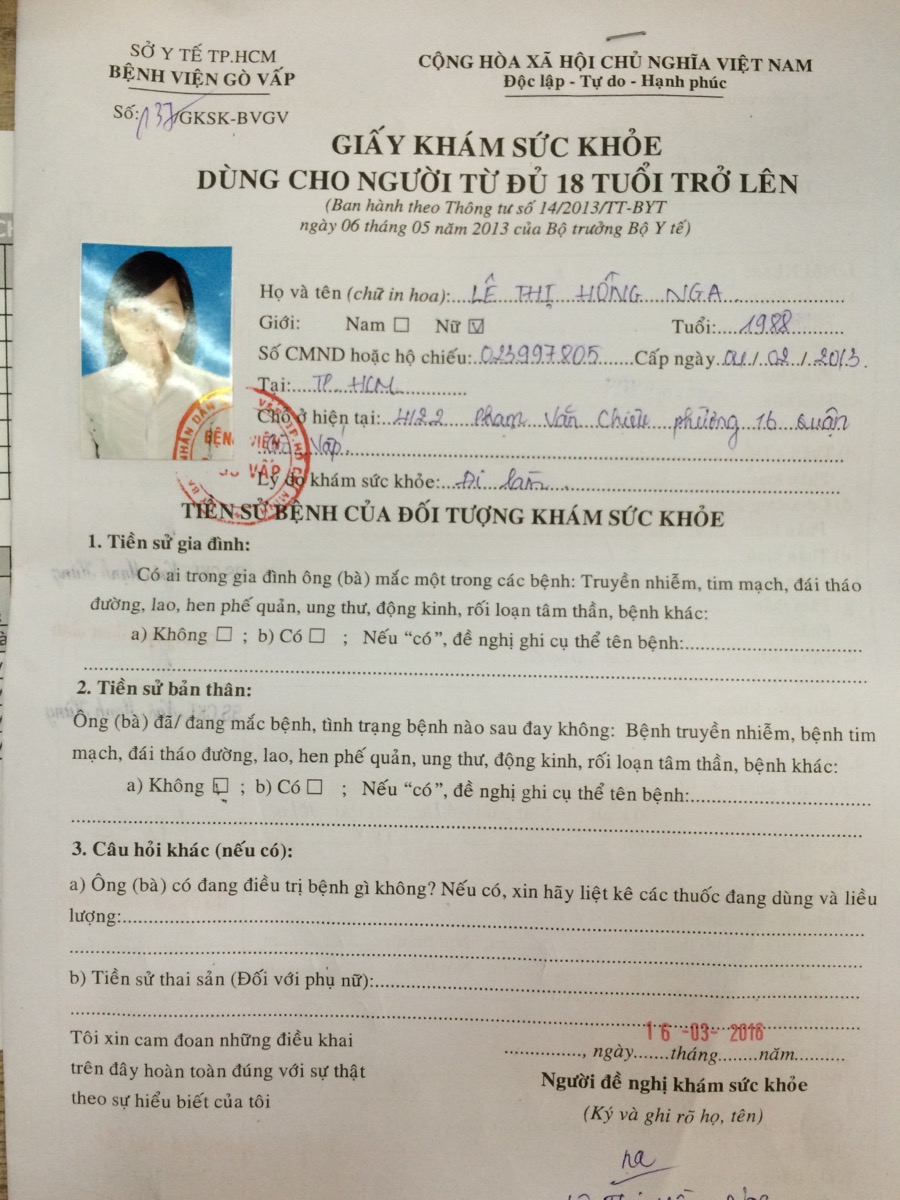 SỞ Y TẾ TP.HCM
BỆNH VIỆN GÒ VẤP
Số: 137/GKSK-BVGV
CỘNG HÒA XÃ HỘI CHỦ NGHĨA VIỆT NAM
Độc lập - Tự do - Hạnh phúc
GIẤY KHÁM SỨC KHỎE
DÙNG CHO NGƯỜI TỪ ĐỦ 18 TUỔI TRỞ LÊN
(Ban hành theo Thông tư số 14/2013/TT-BYT
ngày 06 tháng 05 năm 2013 của Bộ trưởng Bộ Y tế)
Họ và tên (chữ in hoa): LÊ THỊ HỒNG NGA
Giới: Nam ☐ Nữ ☑ Tuổi: 1988
Số CMND hoặc hộ chiếu: 023997805 Cấp ngày 01/02/2013.
Tại: TP. HCM
Chỗ ở hiện tại: 4122 Phạm Văn Chiêu phường 16 quận
Gò Vấp.
Lý do khám sức khỏe: Đi làm.
BỆNH VIỆN
GÒ VẤP
TIỀN SỬ BỆNH CỦA ĐỐI TƯỢNG KHÁM SỨC KHỎE
1. Tiền sử gia đình:
Có ai trong gia đình ông (bà) mắc một trong các bệnh: Truyền nhiễm, tim mạch, đái tháo
đường, lao, hen phế quản, ung thư, động kinh, rối loạn tâm thần, bệnh khác:
a) Không ☐ ; b) Có ☐ ; Nếu “có”, đề nghị ghi cụ thể tên bệnh:
2. Tiền sử bản thân:
Ông (bà) đã/ đang mắc bệnh, tình trạng bệnh nào sau đay không: Bệnh truyền nhiễm, bệnh tim
mạch, đái tháo đường, lao, hen phế quản, ung thư, động kinh, rối loạn tâm thần, bệnh khác:
a) Không ☐ ; b) Có ☐ ; Nếu “có”, đề nghị ghi cụ thể tên bệnh:
3. Câu hỏi khác (nếu có):
a) Ông (bà) có đang điều trị bệnh gì không? Nếu có, xin hãy liệt kê các thuốc đang dùng và liều
lượng:
b) Tiền sử thai sản (Đối với phụ nữ):
Tôi xin cam đoan những điều khai
trên đây hoàn toàn đúng với sự thật
theo sự hiểu biết của tôi
16 -03- 2016
, ngày tháng năm
Người đề nghị khám sức khỏe
(Ký và ghi rõ họ, tên)